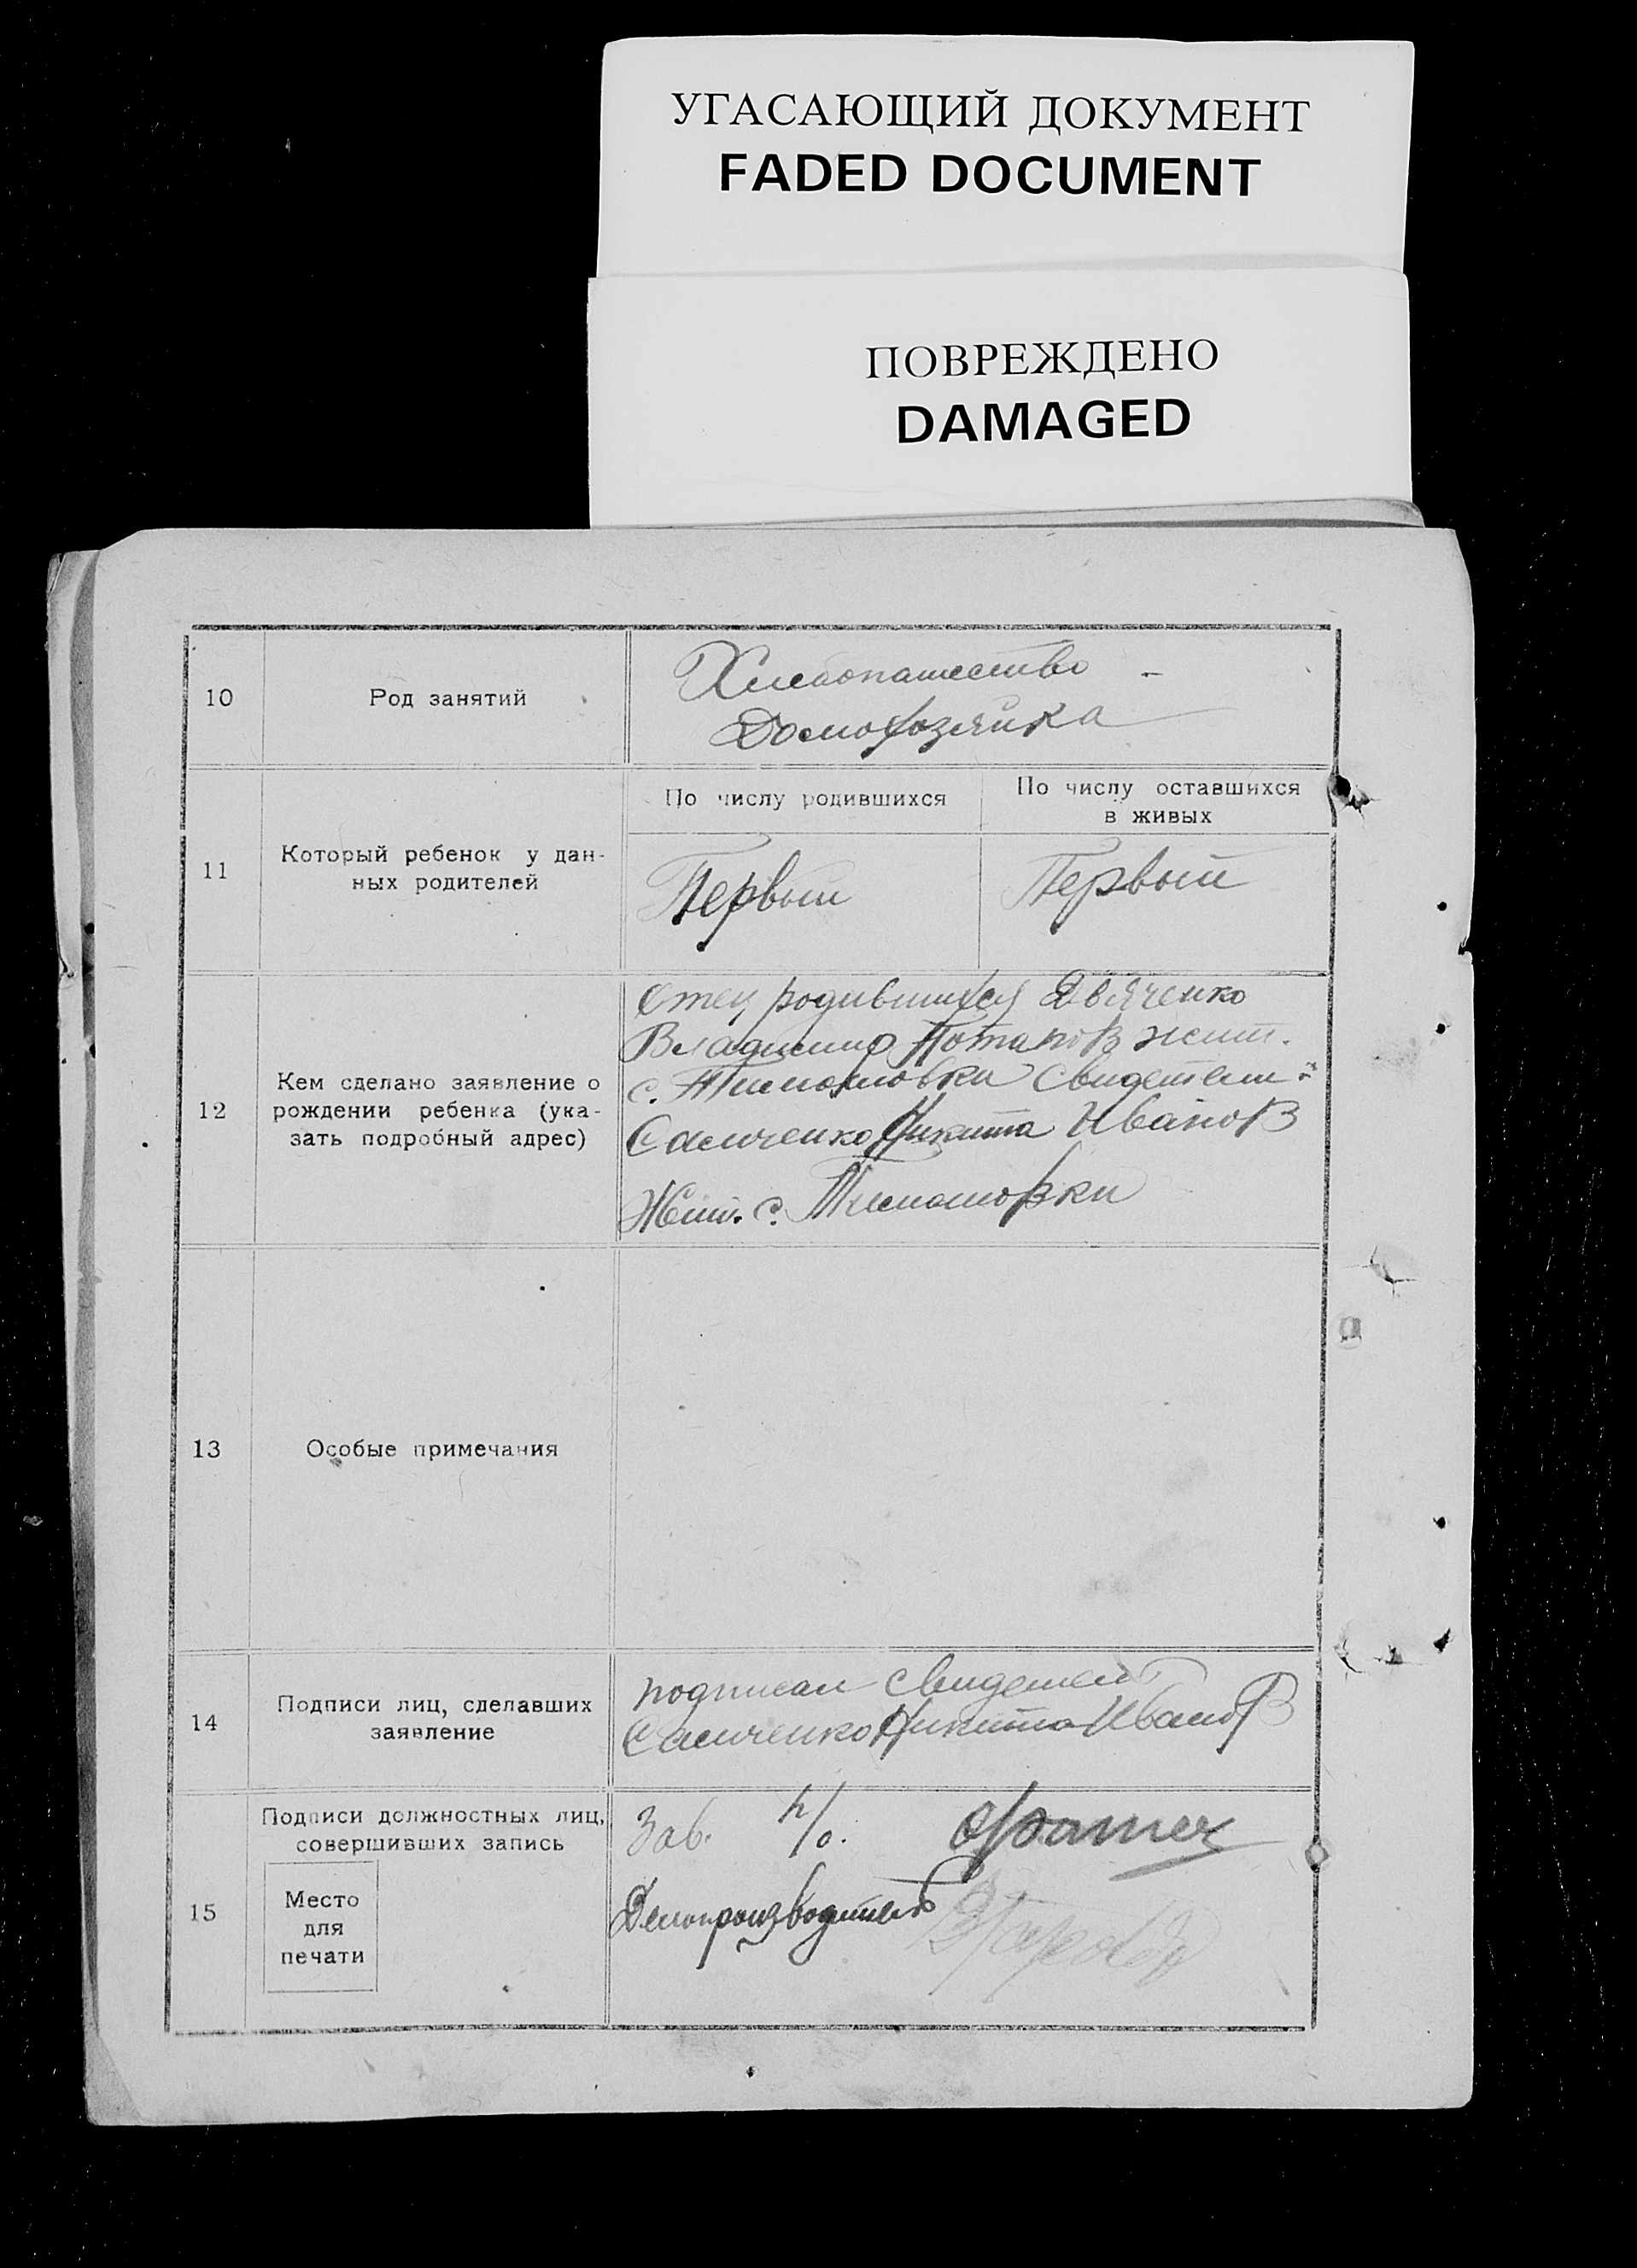 УГАСАЮЩИЙ ДОКУМЕНТ
FADED DOCUMENT
ПОВРЕЖДЕНО
DAMAGED
10
Род занятий
Хлебопашество –
Домохозяйка
11
Который ребенок у дан-
ных родителей
По числу родившихся
Первый
По числу оставшихся
в живых
Первый
12
Кем сделано заявление о
рождении ребенка (ука-
зать подробный адрес)
Отец родившихся Двяченко
Владимир Потапов жит.
с. Тимошовки Свидетели:
Самченко Никита Иванов
Жит. с. Тимошовки
13
Особые примечания
14
Подписи лиц, сделавших
заявление
подписал свидетель
Самченко Никита Иванов
15
Подписи должностных лиц,
совершивших запись
Место
для
печати
Зав.
Делопроизводитель